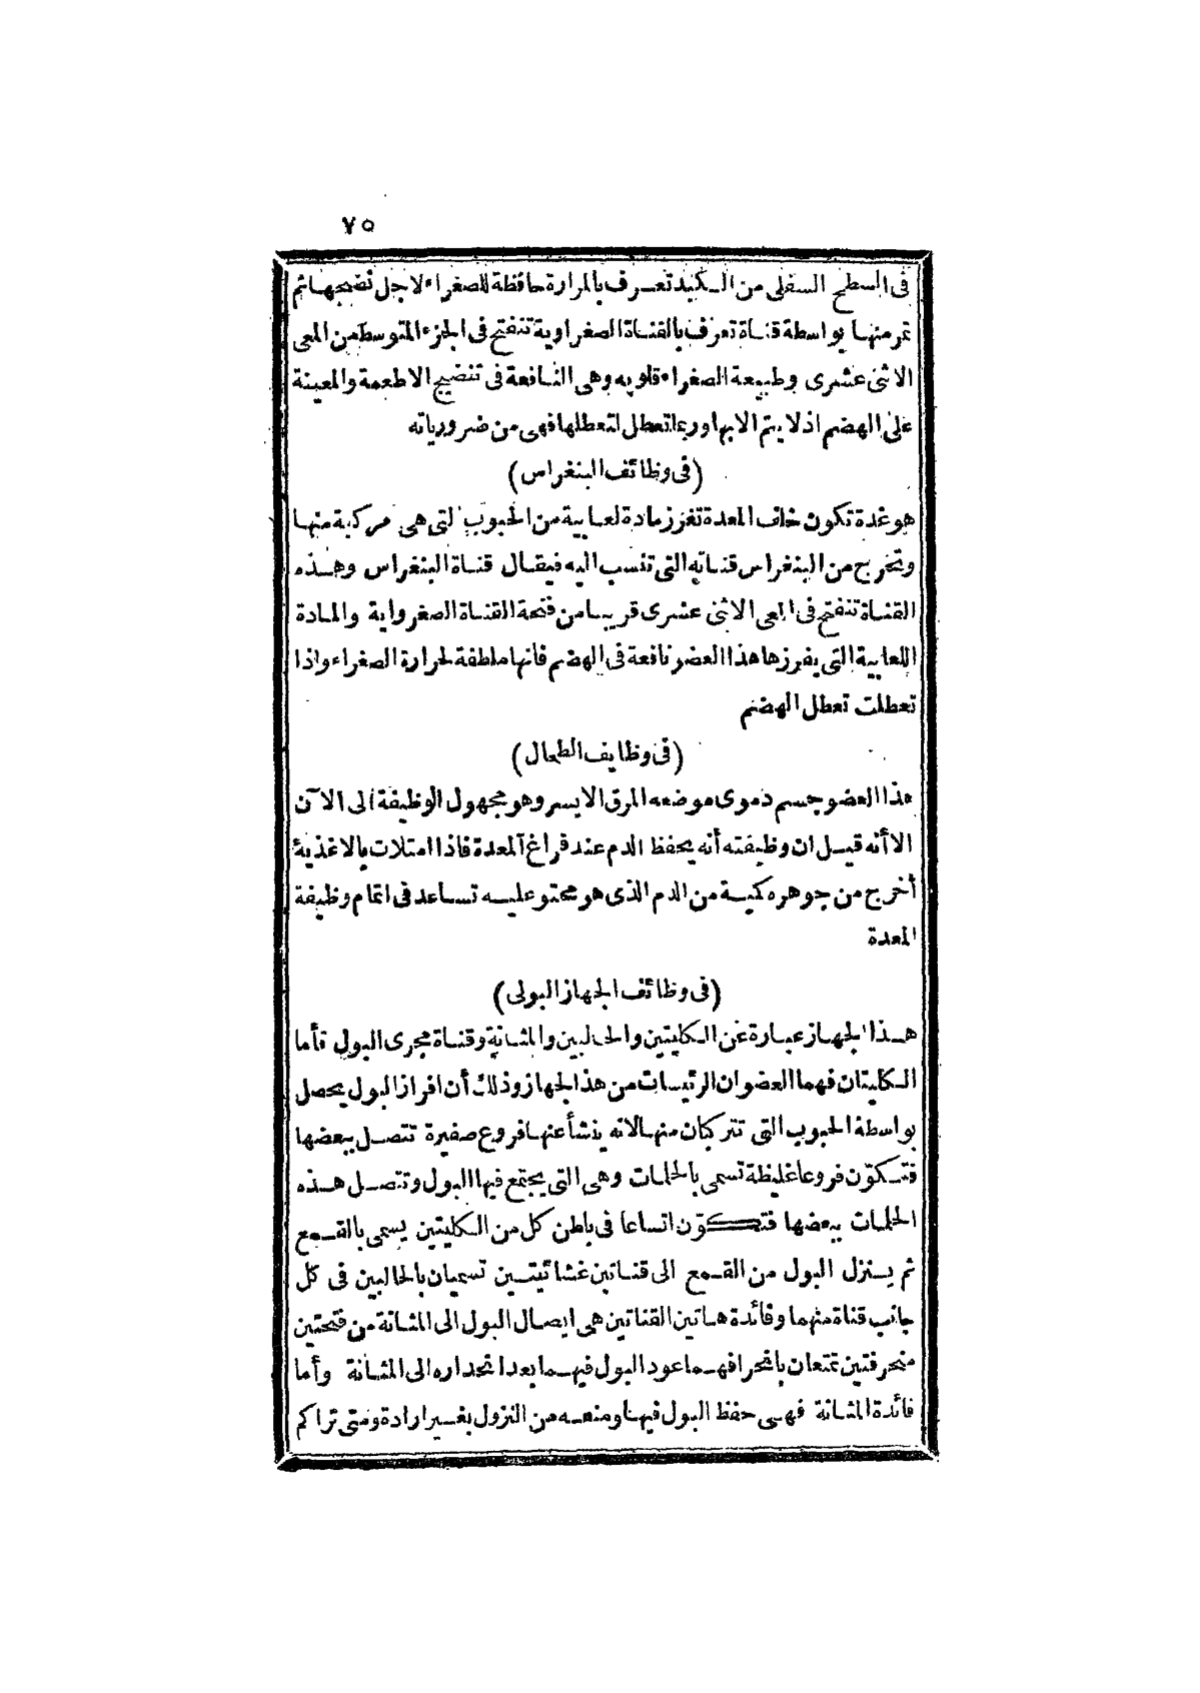 ٧٥
فى السطح السفلى من الكبد تعرف بالمرارة حافظة للصفراء لاجل نضجها ثم
تمر منها بواسطة قناة تعرف بالقناة الصفراوية تنفتح فى الجزء المتوسط من المعى
الاثنى عشرى وطبيعة الصفراء قلويه وهى النافعة فى تنضيج الاطعمة والمعينة
على الهضم اذ لا يتم الا بها وربما تعطل لتعطلها فهى من ضرورياته
(فى وظائف البنغراس)
هو غدة تكون خلف المعدة تفرز مادة لعابية من الحبوب التى هى مركبة منها
وتخرج من البنغراس قناته التى تنسب اليه فيقال قناة البنغراس وهذه
القناة تنفتح فى المعى الاثنى عشرى قريبا من فتحة القناة الصفرواية والمادة
اللعابية التى يفرزها هذا العضو نافعة فى الهضم فانها ملطفة لحرارة الصفراء واذا
تعطلت تعطل الهضم
(فى وظايف الطحال)
هذا العضو جسم دموى موضعه المرق الايسر وهو مجهول الوظيفة الى الآن
الا أنه قيل ان وظيفته أنه يحفظ الدم عند فراغ المعدة فاذا امتلات بالاغذية
أخرج من جوهره كمية من الدم الذى هو محتو عليه تساعد فى اتمام وظيفة
المعدة
(فى وظائف الجهاز البولى)
هذا الجهاز عبارة عن الكليتين والحالبين والمثانة وقناة مجرى البول فأما
الكليتان فهما العضوان الرئيسات من هذا الجهاز وذلك أن افراز البول يحصل
بواسطة الحبوب التى تتركبان منها لانه ينشأ عنها فروع صغيرة تتصل ببعضها
فتكوّن فروعا غليظة تسمى بالحلمات وهى التى يجتمع فيها البول وتتصل هذه
الحلمات ببعضها فتكوّن اتساعا فى باطن كل من الكليتين يسمى بالقمع
ثم ينزل البول من القمع الى قناتين غشائيتين تسميان بالحالبين فى كل
جانب قناة منهما وفائدة هاتين القناتين هى ايصال البول الى المثانة من فتحتين
منحرفتين تمتعان بانحرافهما عود البول فيهما بعد انحداره الى المثانة وأما
فائدة المثانة فهى حفظ البول فيها ومنعه من النزول بغير ارادة ومتى تراكم